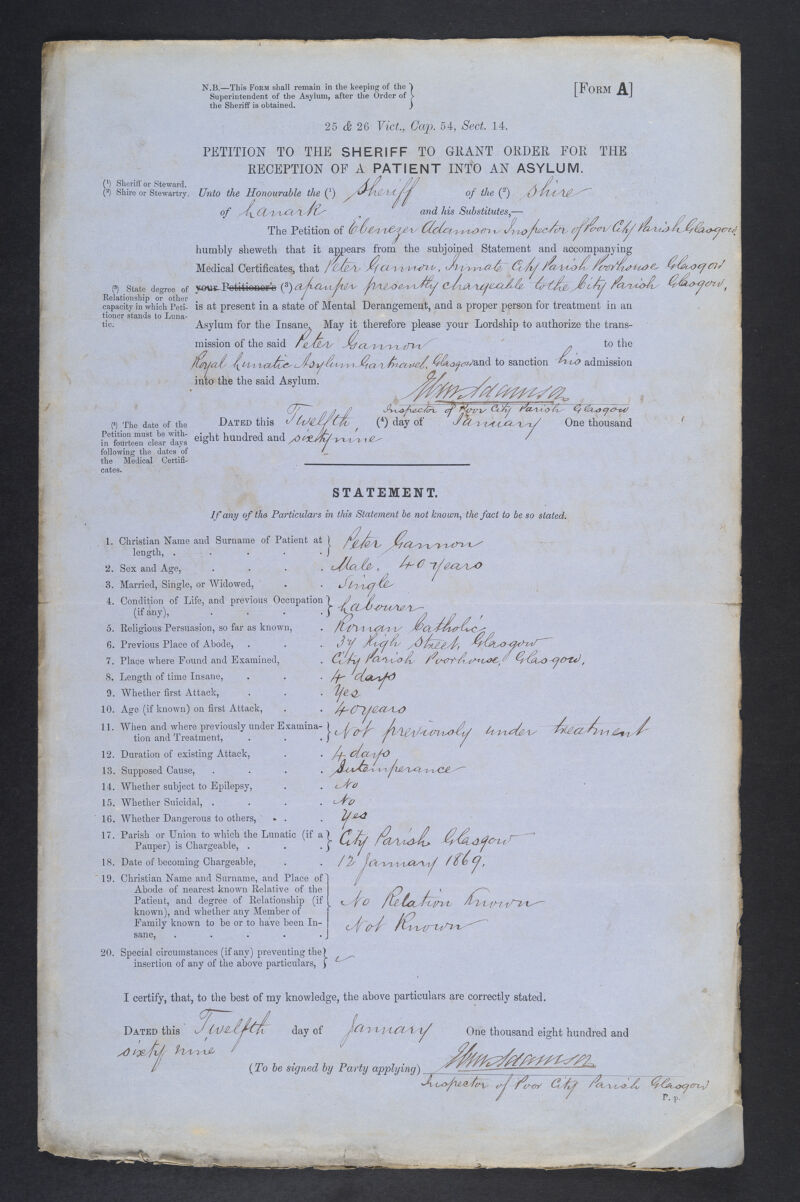 N.B.—This Form shall remain in the keeping of the
Superintendent of the Asylum, after the Order of
the Sheriff is obtained.
[Form A]
25 & 26 Vict., Cap. 54, Sect. 14.
PETITION TO THE SHERIFF TO GRANT ORDER FOR THE
RECEPTION OF A PATIENT INTO AN ASYLUM.
(1) Sheriff or Steward.
(2) Shire or Stewartry.
Unto the Honourable the (1) Sheriff of the (2) Shire
of Lanark and his Substitutes,—
The Petition of Ebenezer Adamson Inspector of Poor City Parish Glasgow.
humbly sheweth that it appears from the subjoined Statement and accompanying
Medical Certificates, that Peter Gannon, Inmate City Parish Poorhouse Glasgow
(3) State degree of
Relationship or other
capacity in which Peti-
tioner stands to Luna-
tic.
your Petitioner's (3) a pauper presently chargeable to the City Parish Glasgow,
is at present in a state of Mental Derangement, and a proper person for treatment in an
Asylum for the Insane. May it therefore please your Lordship to authorize the trans-
mission of the said Peter Gannon to the
Royal Lunatic Asylum Gartnavel, Glasgow and to sanction his admission
into the the said Asylum.
Ebnr Adamson
Inspector of Poor City Parish Glasgow
(4) The date of the
Petition must be with-
in fourteen clear days
following the dates of
the Medical Certifi-
cates.
Dated this Twelfth (4) day of January One thousand
eight hundred and sixty nine
STATEMENT.
If any of the Particulars in this Statement be not known, the fact to be so stated.
1. Christian Name and Surname of Patient at
length, . . . . . Peter Gannon
2. Sex and Age, . . . . Male. 40 years
3. Married, Single, or Widowed, . . Single
4. Condition of Life, and previous Occupation
(if any), . . . . Labourer
5. Religious Persuasion, so far as known, . Roman Catholic
6. Previous Place of Abode, . . . 34 High Street, Glasgow
7. Place where Found and Examined, . City Parish Poorhouse, Glasgow.
8. Length of time Insane, . . . 4 days
9. Whether first Attack, . . . Yes
10. Age (if known) on first Attack, . . 40 years
11. When and where previously under Examina-
tion and Treatment, . . . Not previously under treatment
12. Duration of existing Attack, . . 4 days
13. Supposed Cause, . . . . Intemperance
14. Whether subject to Epilepsy, . . No
15. Whether Suicidal, . . . . No
16. Whether Dangerous to others, . . . Yes
17. Parish or Union to which the Lunatic (if a
Pauper) is Chargeable, . . . City Parish Glasgow
18. Date of becoming Chargeable, . . 12 January 1869.
19. Christian Name and Surname, and Place of
Abode of nearest known Relative of the
Patient, and degree of Relationship (if No Relation Known
known), and whether any Member of
Family known to be or to have been In- Not Known
sane, . . . . .
20. Special circumstances (if any) preventing the
insertion of any of the above particulars,
I certify, that, to the best of my knowledge, the above particulars are correctly stated.
Dated this Twelfth day of January One thousand eight hundred and
sixty nine
(To be signed by Party applying) Ebnr Adamson
Inspector of Poor City Parish Glasgow
P. p.